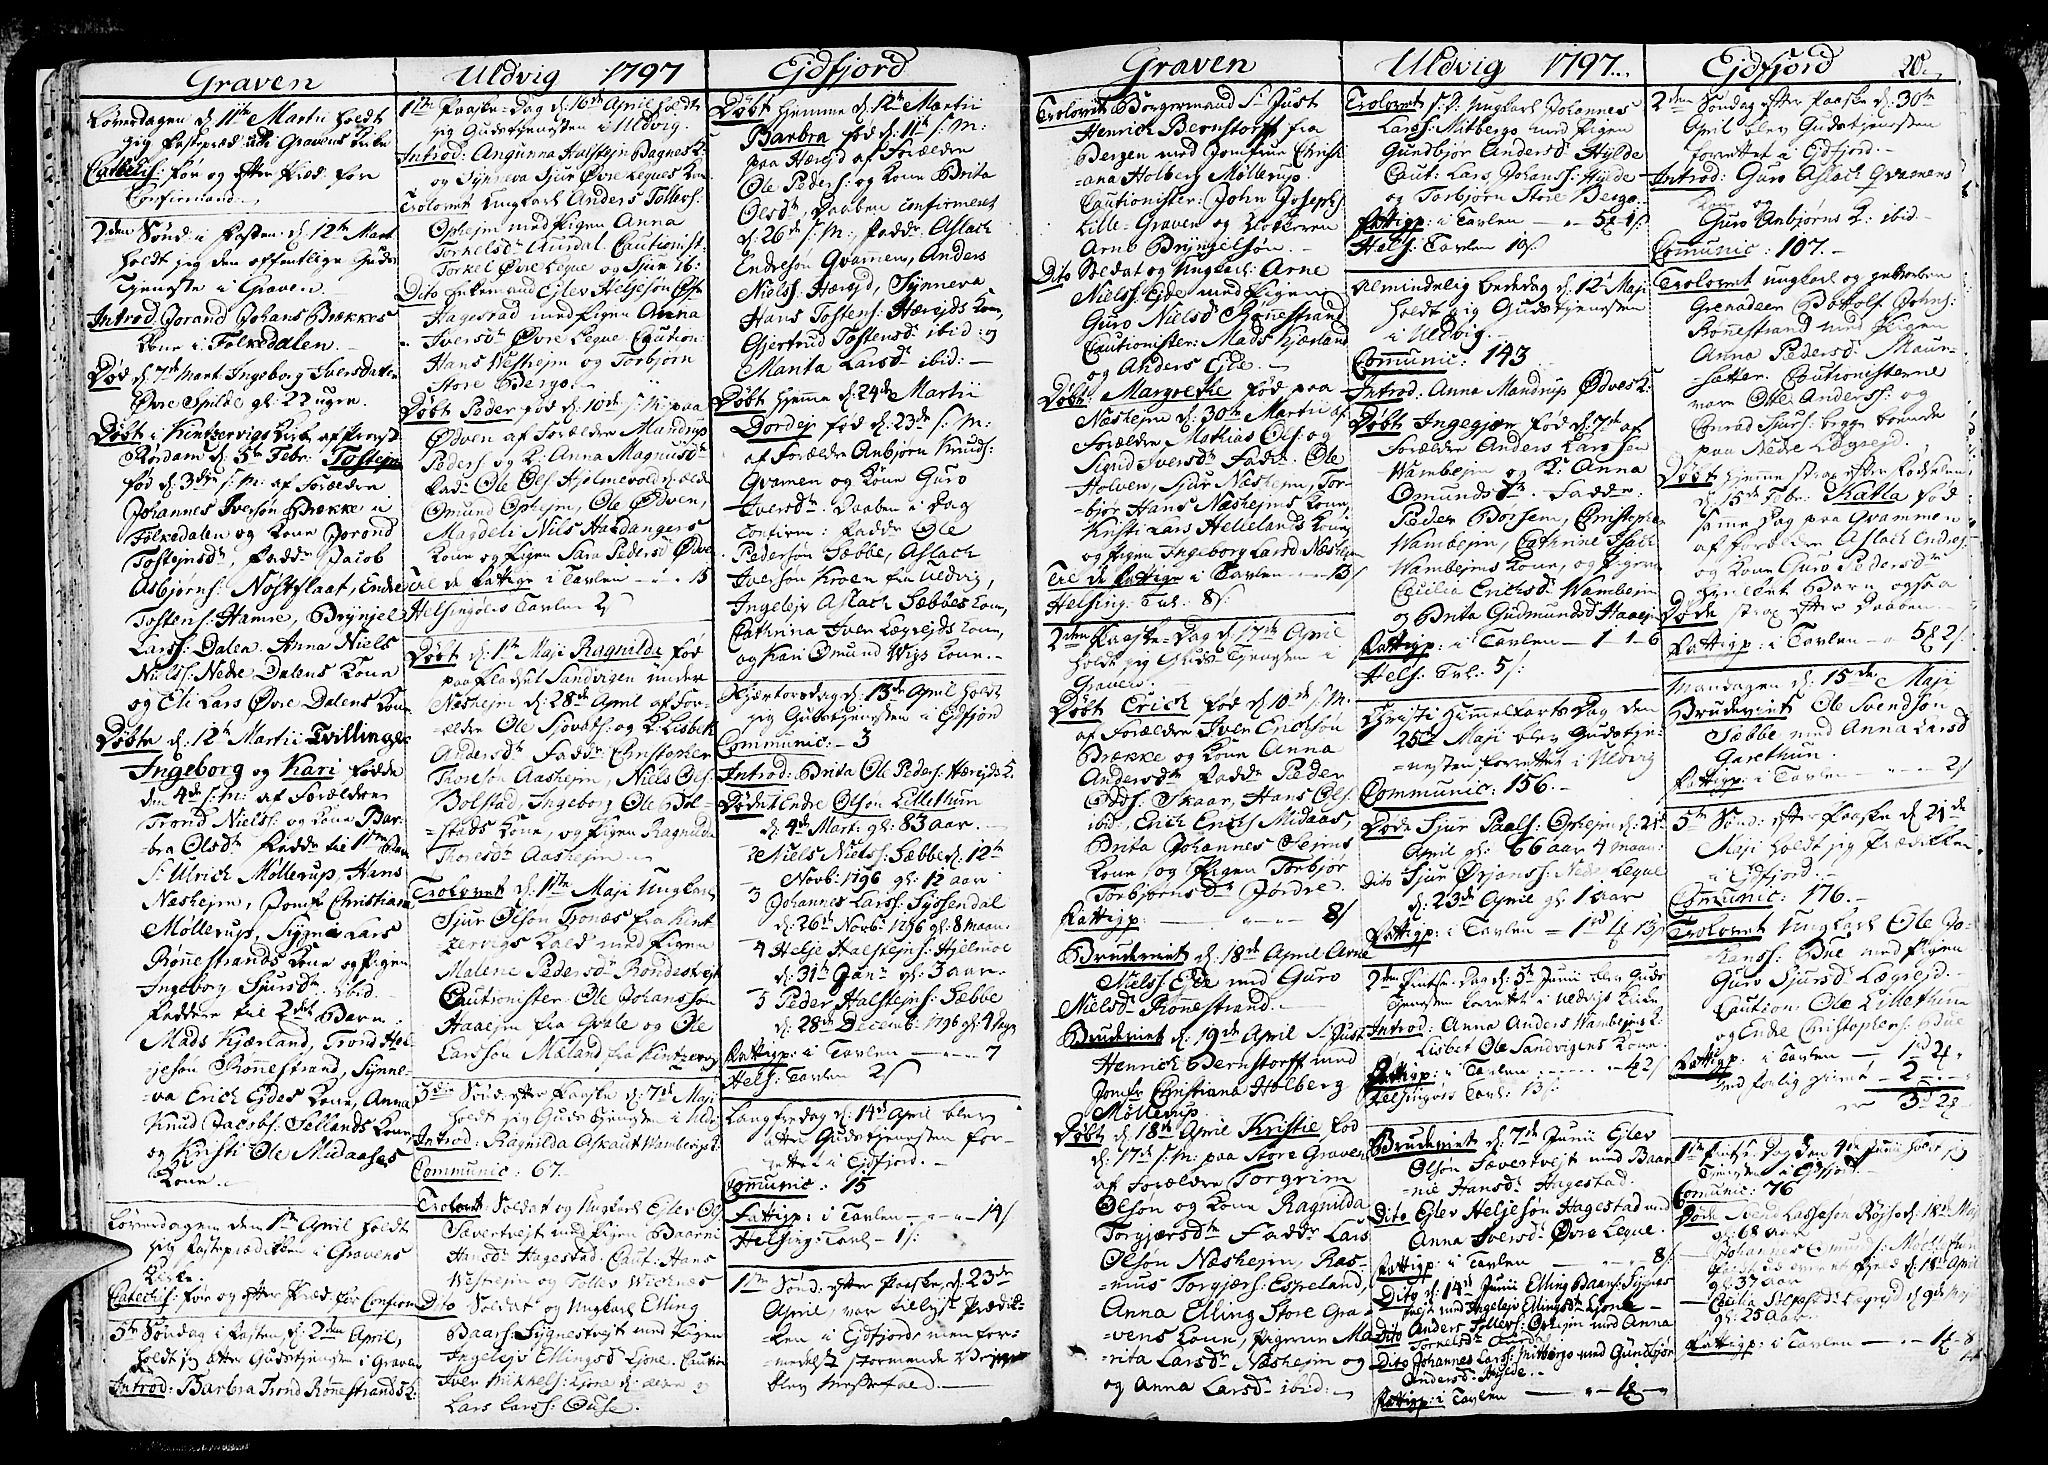 Graven
Løverdagen d: 11te Martii holdt
jeg Fastepræd: udi Gravens Kirke
Catechis: før og efter Præd: for
Confirmand:
2den Sønd: i Fasten d: 12te Mart:
holdt jeg den offentlige Guds
Tjeneste i Graven.
Introd: Jorand Johans Brækkes
Kone i Folkedalen.
Død d: 7de Mart: Ingeborg Iversdatter
Øvre Spilde gl: 22 ugen.
Døbt i Kintzervigs Kirke af Provst
Rordam d: 5te Febr: Tostejn
fød d: 3die s: M: af Forældre
Johannes Iversøn Brække i
Folkedalen og Kone Jorond
Tostejnsdr, Faddr Jacob
Asbjørns: Nøstflaat, Endre
Tostens: Hamre, Brynjel
Larss: Dalen, Anna Niels
Nielss: Nedre Dalens Kone
og Eli Lars Øvre Dalens Kone
Døbte d: 12te Martii Tvillinger
Ingeborg og Kari fødde
den 4de s: M: af Forældre
Trond Nielss: og Kone Bar-
bra Olsdr Faddre til 1te Barn
Sr Ulrich Møllerup, Hans
Næshejm, Jomfr Christiana
Møllerup, Sygni Lars
Rønnestrands Kone og Pigen
Ingeborg Sjursdr ibid.
Faddere til 2det Barn:
Mads Kjærland, Trond Hel-
jesøn Rønnestrand, Synne-
va Erich Ejdes Kone, Anna
Knud Jacobs: Sellands Kone
og Kristi Ole Midaases
Kone.
Løverdagen den 1te April holdt
jeg Fasteprædiken i Gravens
Kirke
Catechis: før og efter Præd: for Confirm
5te Søndag i Fasten d: 2den April,
holdt jeg atter Gudstjenesten i Graven
Introd: Barbra Trond Rønnestrands K:
Uldvig 1797
1te Paaske-Dag d: 16de April holdt
jeg Gudstjenesten i Uldvig.
Introd: Angunna Halstejn Bagnes K:
og Synneva Sjur Øvre Leques Kone
Trolovet Ungkarl Anders Tollefs:
Ophejm med Pigen Anna
Torkelsdr Aurdal. Cautionist:
Torkel Øvre Leque og Sjur ib:
Dito Enkemand Ejlev Heljesøn
Hagestad med Pigen Anna
Iversdr Øvre Leque Caution:
Hans Westhejm og Torbjørn
Store Bergo.
Døbt Peder fød d: 10de s: M: paa
Ødven af Forældre Mandrup
Peders: og K: Anna Magnusdr
Fad: Ole Ols Hjelmevold
Omund Ophejm, Ole Ødven,
Magdeli Nils Hardangers
Kone og Pigen Sara Pedersdr Ødven
Til de Fattige i Tavlen - - 15
Helsingøers Tavlen 2/
Døbt d: 1te Maji Ragnilde fød
paa Pladset Sandvigen under
Næshejm d: 28de April af For-
ældre Ole Sjovats: og K: Lisbeth
Andersdr Faddr Christopher
Thoresøn Aashejm, Niels Ols:
Bolstad, Ingeborg Ole Bol-
=stads Kone, og Pigen Ragnilda
Thoresdr Aashejm
Trolovet d: 11te Maji Ungkarl
Sjur Olsøn Tronæs fra Kint-
zervigs Kald med Pigen
Malene Pedersdr Rondestvejt
Cautionister: Ole Johansøn
Haaejm fra Gvale og Ole
Larssøn Mæland, fra Kintzervig
3die Sønd: efter Paaske d: 7de Maji
holdt jeg Guds Tjenesten i Uldv:
Introd: Ragnilda Aslaut Wambejms K:
Communic: 67.
Trolovet: Soldat og Ungkarl Ejlev Ols:
Sævertvejt med Pigen Baarni
Hansdr Hagestad. Caut: Hans
Westrejm og Tollev Wichnes
Dito Soldat og Ungkarl Elling
Baars: Sygnestvejt med Pigen
Ingelejv Ellingsdr Ljone. Caution
Iver Mikkels: Ljone d: ældre og
Lars Larss: Ouse.
Ejdfjord
Døbt hjemme d: 12te Martii
Barbra fød d: 11te s: M:
paa Hærejd af Forældre
Ole Peders: og Kone Brita
Olsdr, Daaben confirmert
d: 26de s: M:, Faddr Aslach
Endresøn Gvamen, Anders
Nielss: Hærejd, Synneva
Hans Tostens: Hærejds Kone,
Gjertrud Tostensdr ibid: og
Manta Larsdr ibid:
Døbt hjemme d: 24de Martii
Dordej fød d: 23de s: M:
af Forældre Anbjørn Knuds:
Gvamen og Kone Guro
Iversdr. Daaben i Dag
Confirm: Faddr Ole
Pedersøn Sæbbe, Aslach
Iversøn Kroen fra Uldvig,
Ingelejv Aslach Sæbbes Kone,
Cathrina Iver Lægrejds Kone,
og Kari Omund Wigs Kone.
Skjærtorsdag d: 13de April holdt
jeg Gudstjenesten i Ejdfjord
Communic: 3
Introd: Brita Ole Peders: Hærejds K.
Dødt Endre Olsøn Lillethun
d: 4de Mart: gl: 83 aar.
2 Niels Nielss: Sæbbe d: 12te
Novb: 1796 gl: 12 aar
3 Johannes Larss: Syssendal
d: 26de Novb: 1796 gl: 8 maan:
4 Helje Halstejns: Hjelmoe
d: 31te Janr gl: 3 aar.
5 Peder Halstejns: Sæbbe
d: 28de Decemb: 1796 gl: 4 Dage
Fattigp: i Tavlen - - 7
Hels: Tavlen 2/
Langfredag d: 14de April blev
atter Gudstjenesten for-
=rettet i Ejdfjord.
Communic: 15
Fattigp: i Tavlen - - 14/
Helsing: Tavl - 1/:
1te Sønd: efter Paaske, d: 23de
April, var tillyst Prædik-
=ken i Ejdfjord, men for-
=medelst stormende Vejr
blev Messefald.
Graven
Trolovet Borgermand Sr Just
Henrich Bernstorff fra
Bergen med Jomfrue Christi
=ana Holberg Møllerup.
Cautionister: John Josephs:
Lille-Graven og Klokkeren
Arne Brynjelsøn.
Dito Soldat og Ungkarl: Arne
Nielss: Ejde med Pigen
Guro Nielsdr Rønnestrand
Cautionister: Mads Kjærland
og Anders Ejde.
Døbt Margrethe fød paa
Næshejm d: 30te Martii af
Forældre Mathias Ols: og
Sigrid Iversdr Faddr: Ole
Holven, Sjur Næshejm, Tor-
bjør Hans Næshejms Kone,
Kristi Lars Hellelands Kone,
og Pigen Ingeborg Larsd Næshejm
Til de Fattige i Tavlen - - 13/
Helsing: Tvl: 8/:
2den Paaske-Dag d: 17de April
holdt jeg Guds Tjenesten i
Graven.
Døbt Erich fød d: 10de s: M:
af Forældre Iver Erichsøn
Brække og Kone Anna
Andersdr Faddr Peder
Odds: Skaar, Hans Ols:
ibid:, Erich Erichs Midaas,
Brita Johannes Sejms
Kone og Pigen Torbjør
Torbjørnsdr Jordre.
Fattigp: - - 8/
Brudeviet d: 18de April Arne
Nielss Ejde med Guro
Nielsdr Rønnestrand.
Brudeviet d: 19de April Sr Just
Henrich Bernstorff med
Jomfr Christiana Holberg
Møllerup.
Døbt d: 18de April Kristie fød
d: 17de s: M: paa Store Graven
af Forældre Torgrim
Olsøn og Kone Ragnilda
Torgjersdr Faddr Lars
Olsøn Næshejm, Ras-
=mus Torgjærs: Espeland,
Anna Elling Store Gra-
=vens Kone, Pigerne Ma-
=rita Larsdr Næshejm og
og Anna Larsdr ibid:
Uldvig 1797
Trolovet s: D: Ungkarl Johannes
Larss: Mitbergo med Pigen
Gundbjør Andersdr Hylde
Caut: Lars Johanss: Hylde
og Torbjørn Store Bergo.
Fattigp: i Tavlen - - 5 1/:
Hels: Tavlen 10/:
Almindelig Bededag d: 12te Maji
holdt jeg Gudstjenesten
i Uldvig.
Communic: 143
Introd: Anna Mandrup Ødves K:
Døbt Ingegjær fød d: 7de af
Forældre Anders Larssen
Wambejm og K: Anna
Omundsdr. Faddr:
Peder Børsem, Christopher
Wambejm, Cathrine Isach
Wambejms Kone, og Pigerne
Cecilia Erichsdr Wambejm
og Brita Gudmundsd Haaejm
Fattigp: i Tavlen - 1-1-6
Hels: Tvl: 5/:
Christi Himmelfarts Dag den
25de Maji blev Gudstje-
=nesten forrettet i Uldvig
Communic: 156.
Døde Sjur Paals: Ophejm d: 21de
April gl: 66 aar 4 maan:
Dito Sjur Ørjanss: Nedre Leque
d: 23de April gl: 1 aar
Fattigp: i Tavlen - 1d 4 13/
2den Pintse-Dag d: 5te Junii blev Guds
Tjenesten forrettet i Uldvigs Kirke
Introd: Anna Anders Wambejms K:
Lisbet Ole Sandvigens Kone.
Fattigp: i Tavlen - - 42/
Helsingøes Tavl: 13/:
Brudeviet d: 7de Junii Ejlev
Olsøn Sævertvejt med Baar-
=nie Hansdr Hagestad.
Dito Ejlev Heljesøn Hagestad med
Anna Iversdr Øvre Leque.
Fattigp: i Tavlen - - 8/:
Dito d: 14de Junii Elling Baars: Sygnes
tvejt med Ingelejv Ellingsdr Ljone
Dito Anders Tollefs: Ophejm med Anna
Torkelsdr Aurdal
Dito Johannes Larss: Mitbergo med Gundbjør
Andersdr Hylde.
Fattigp: i Tavlen - - 4
Ejdfjord 20.
2den Søndag efter Paaske d: 30te
April blev Gudstjenesten
forrettet i Ejdfjord.
Introd: Guro Aslach Gvamens
Kone og
Guro Anbjørns K: ibid:
Communic: 107.
Trolovet Ungkarl og geborben
Grenadeer Bottolf Johns:
Rønnestrand med Pigen
Anna Pedersdr Maur-
=satter. Cautionisterne
vare Ole Anderss: og
Conrad Sjurs: begge boende
paa Nedre Lægrejd.
Døbt hjemme strax efter Fødselen
d: 15de Febr: Katla fød
samme Dag paa Gvammen
af Forældre Aslach Endres:
og Kone Guro Pedersdr
hvilket Barn ogsaa
Døde strax efter Daaben.
Fattigp: i Tavlen - 5 2/:
Mandagen d: 15de Maji
Brudeviet Ole Svendsøn
Sæbbe med Anna Larsd
Garethun.
Fattigp: i Tavlen - - 2/
5te Sønd: efter Paaske d 21de
Maji holdt jeg Prædiken
i Ejdfjord.
Communic: 176.
Trolovet Ungkarl Ole Jo-
hanss: Bue med Pigen
Guro Sjursdr Lægrejd.
Caution: Ole Lillethun
og Endre Christophers: Bue
Fattigp: i Tavlen - 1d 2
3d 2
1te Pintse Dag den 4de Junii holdt jeg
Tjenesten i Ejdfjord.
Comunic: 76
Døde Svend Lassesøn Røyse d: 18de Maj
gl: 68 aar
Johannes Omunds:
d: 18de April
gl: 37 aar
Cecilia d: 9de
gl: 25 aar.
Fattigp: i Tavlen - - 4 8